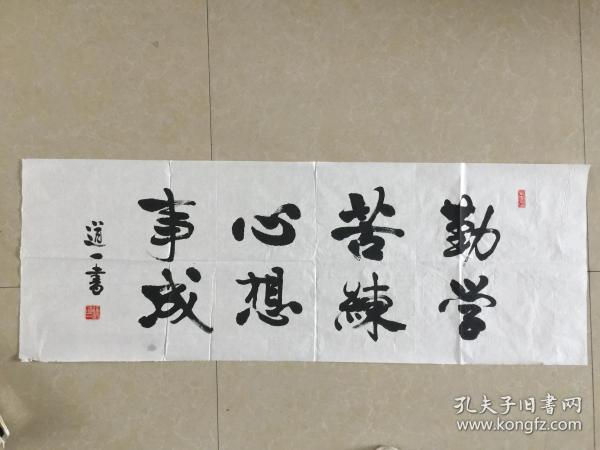 勤学
苦練
心想
事成
道一书
孔夫子旧書网
www.kongfz.com